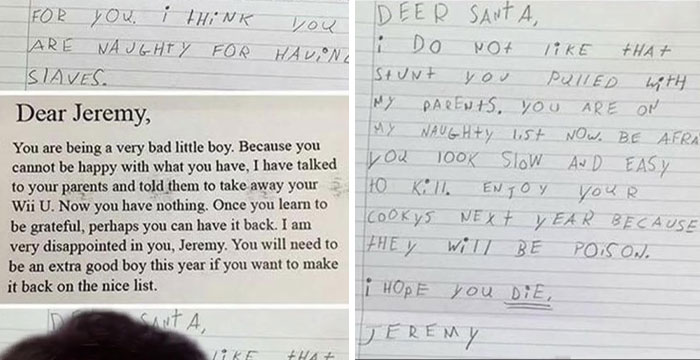 FOR YOU. i tHiNK YOU
ARE NAUGHTY FOR HAViNG
SlAVES.
Dear Jeremy,
You are being a very bad little boy. Because you
cannot be happy with what you have, I have talked
to your parents and told them to take away your
Wii U. Now you have nothing. Once you learn to
be grateful, perhaps you can have it back. I am
very disappointed in you, Jeremy. You will need to
be an extra good boy this year if you want to make
it back on the nice list.
SANtA,
liKE tHAt
DEER SANtA,
i DO NOt liKE tHAt
StUNt YOU PUllED WitH
MY PARENtS. YOU ARE ON
MY NAUGHtY liSt NOW. BE AFRA
YOU lOOK SlOW AND EASY
tO Kill. ENJOY YOUR
COOKYS NEXt YEAR BECAUSE
tHEY Will BE POiSON.
i HOPE YOU DiE.
JEREMY